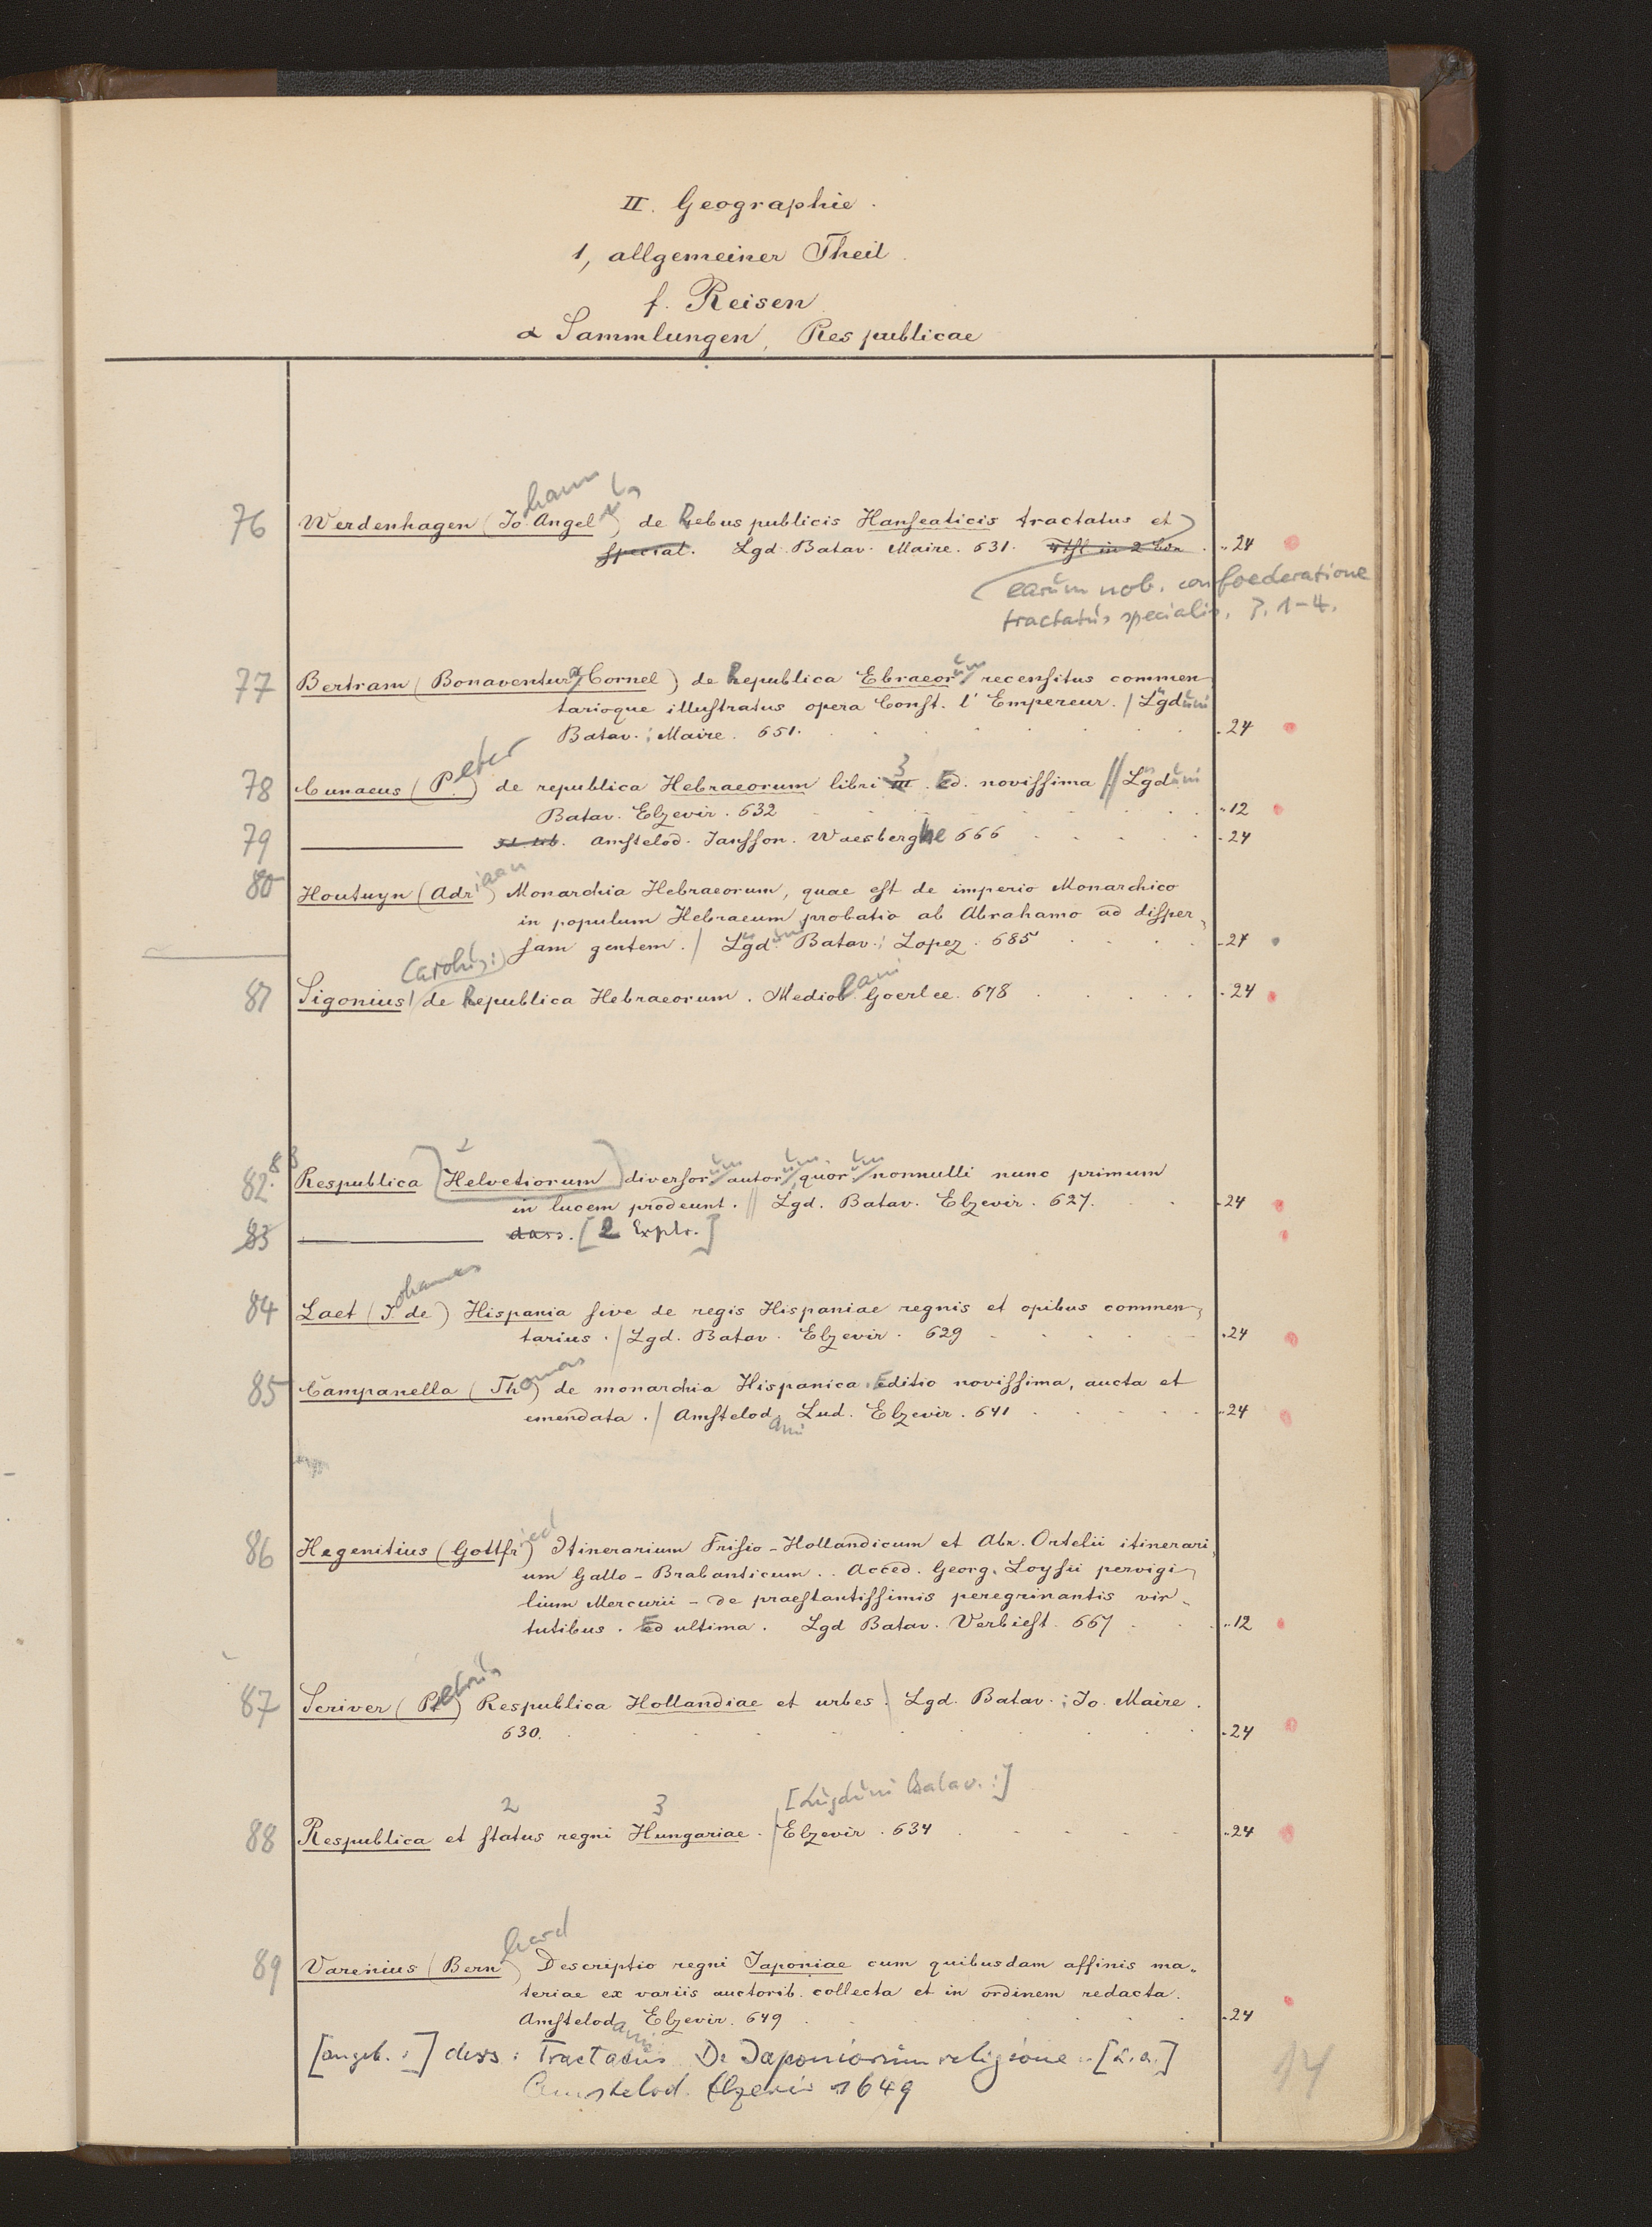 II. Geographie.
1, allgemeiner Theil.
f. Reisen
α Sammlungen, Respublicae
76 Werdenhagen (Johann Angelus) de Rebuspublicis Hanseaticis tractatus et
special. Lgd. Batav. Maire. 631. 4 Thl in 2 Bdn . „ 24
earum nob. confoederatione
tractatus specialis. P. 1-4.
77 Bertram (Bonaventura Cornel) de Republica Ebraeorum recensitus commen-
tarioque illustratus opera Const. l'Empereur. / Lugduni
Batav.: Maire. 651. . 24
78 Cunaeus (Peter) de republica Hebraeorum libri III 3. Ed. novissima // Lugduni
Batav. Elzevir. 632 „ 12
79 ——— Amstelod. Jansson. Waesberghe 666 - 24
80 Houtuyn (Adriaan) Monarchia Hebraeorum, quae est de imperio Monarchico
in populum Hebraeum probatio ab Abrahamo ad disper-
sam gentem. / Lugdunï Batav.: Lopez. 685 - 24
81 Sigonius, (Carolus:) de Republica Hebraeorum. Mediolani Goerlee. 678 - 24
82.83 Respublica Helvetiorum diversorum autorum, quorum nonnulli nunc primum
in lucem prodeunt. // Lgd. Batav. Elzevir. 627. - 24
83 ——— dass. [2 Explr.]
84 Laet (Johannes de) Hispania sive de regis Hispaniae regnis et opibus commen-
tarius. / Lgd. Batav. Elzevir. 629 „ 24
85 Campanella (Thomas) de monarchia Hispanica. Editio novissima, aucta et
emendata. / Amstelodami Lud. Elzevir. 641 „ 24
86 Hegenitius (Gottfried) Itinerarium Frisio-Hollandicum et Abr. Ortelii itinerari-
um Gallo-Brabanticum.. Acced. Georg. Loysii pervigi-
lium Mercurii - de praestantissimis peregrinantis vir-
tutibus. Ed ultima. Lgd Batav. Verbiest. 667 „ 12
87 Scriver (Petrus) Respublica Hollandiae et urbes. / Lgd. Batav.: Jo. Maire.
630. - 24
2 3 [Lugduni Batav.:]
88 Respublica et status regni Hungariae. / Elzevir. 634 „ 24
89 Varenius (Bernhard) Descriptio regni Japoniae cum quibusdam affinis ma-
teriae ex variis auctorib. collecta et in ordinem redacta.
Amstelodami Elzevir. 649 - 24
[angeb.:] dess: Tractatus De Japoniorum religione .. [u.a.]
Amstelod. Elzevir 1649
14